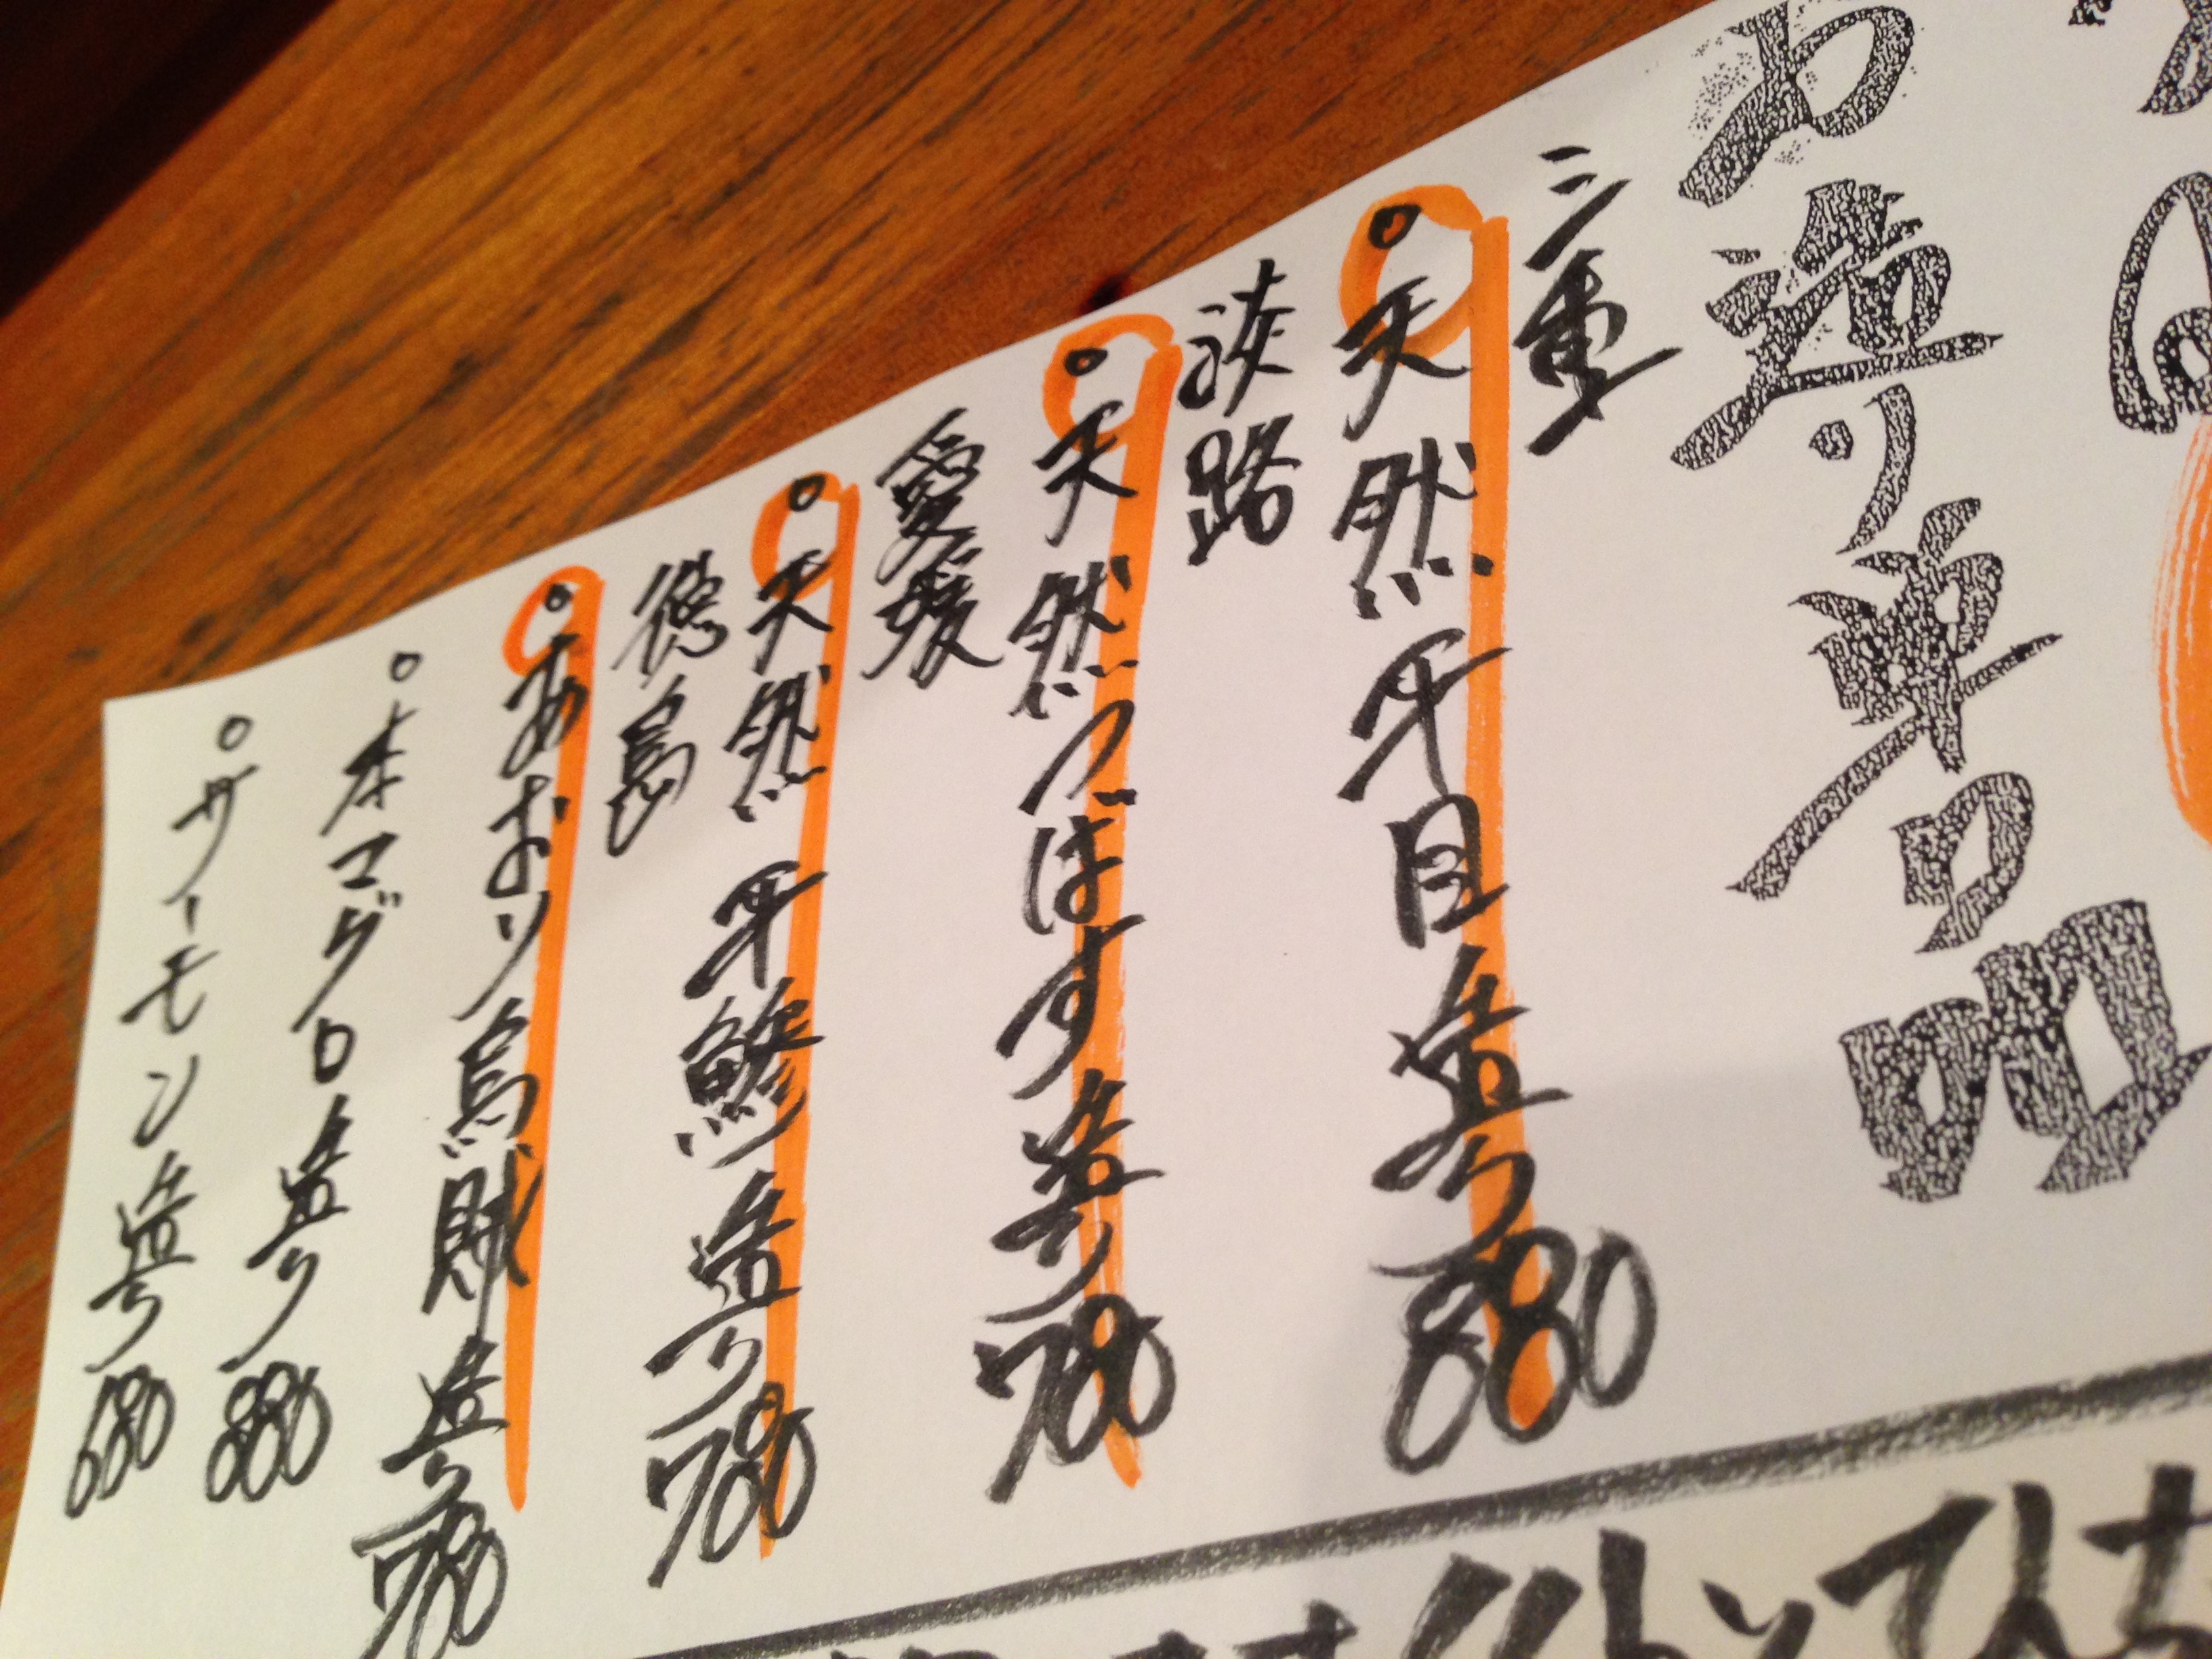 お造り単品
三重
天然平目造り880
淡路
天然つばす造り780
愛媛
天然平鯵造り780
徳島
あおり烏賊造り780
本マグロ造り880
サーモン造り680